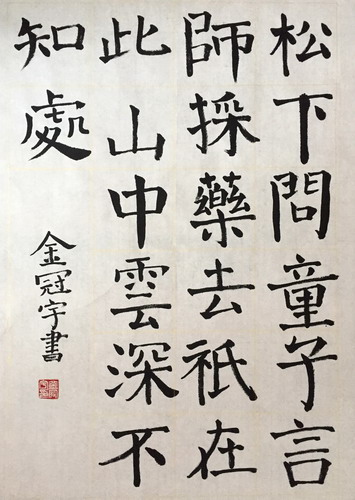 松下問童子言
師採藥去祇在
此山中雲深不
知處
金冠宇書